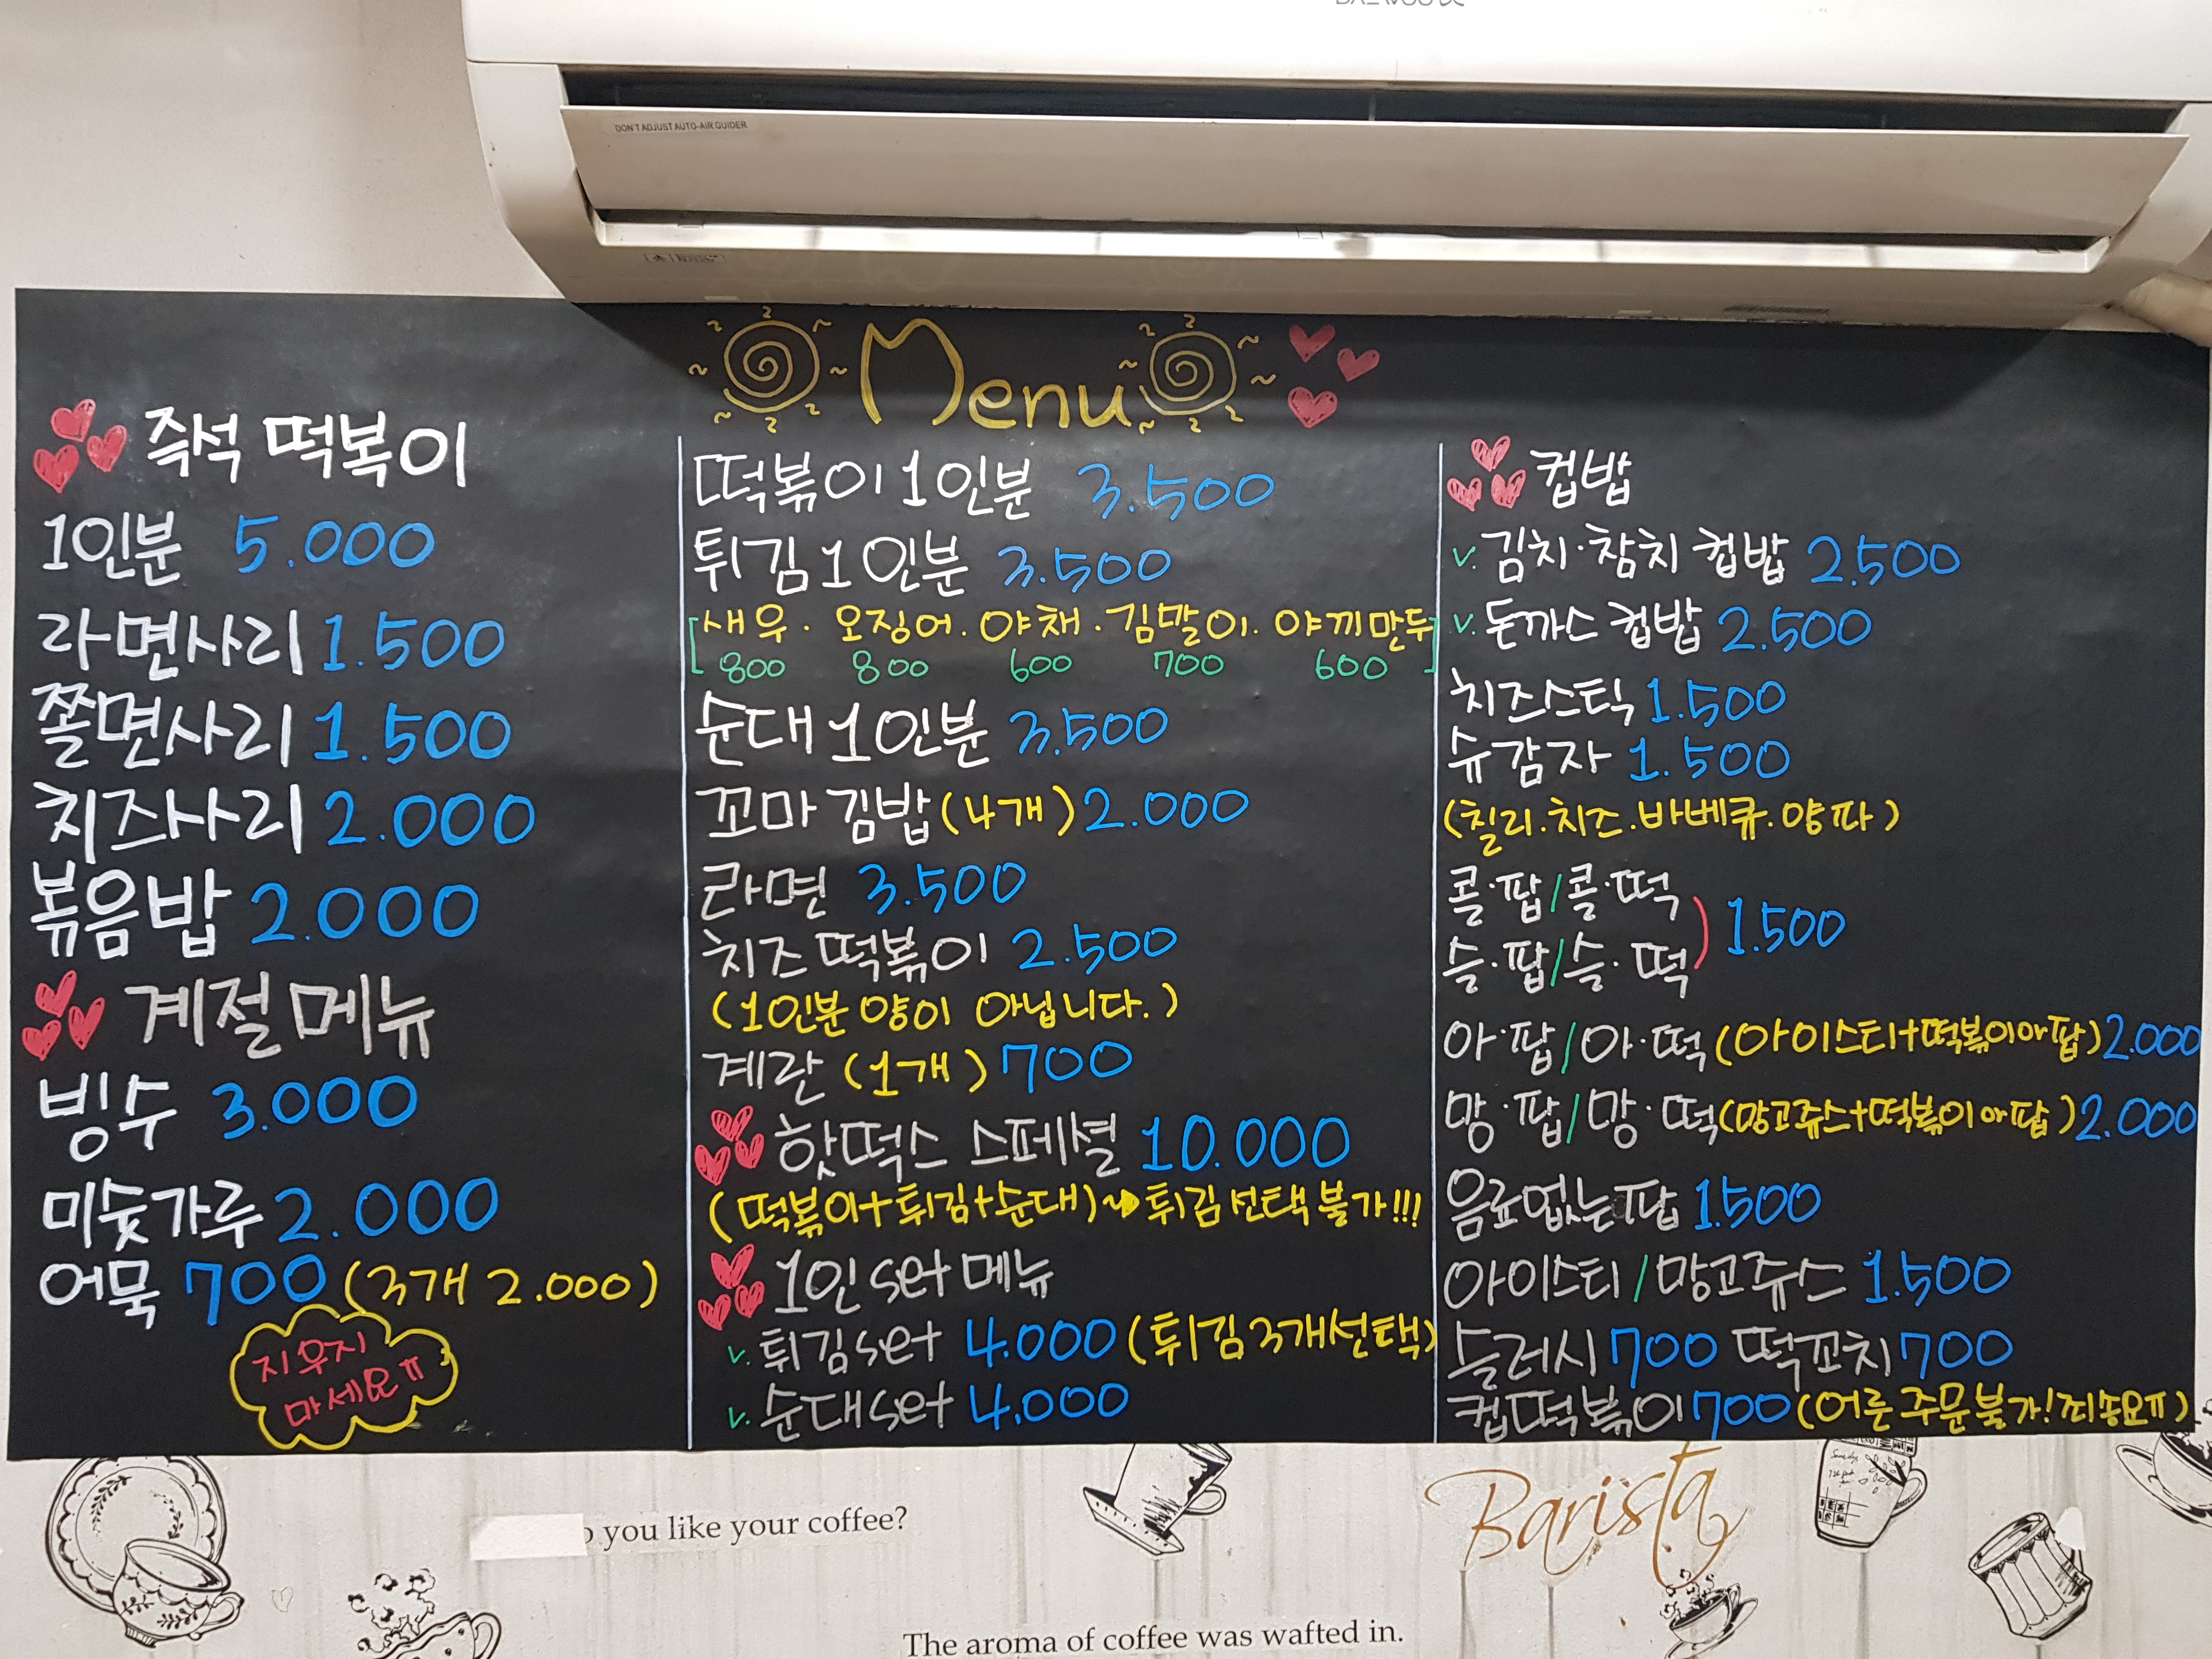 DON'T ADJUST AUTO-AIR GUIDER
Menu
즉석 떡복이
1인분 5.000
라면사리 1.500
쫄면사리 1.500
치즈사리 2.000
볶음밥 2.000
계절메뉴
빙수 3.000
미숫가루 2.000
어묵 700 (3개 2.000)
지우지
마세요ㅠ
떡볶이 1인분 3.500
튀김 1인분 3.500
[새우. 오징어. 야채. 김말이. 야끼만두
800 800 600 700 600]
순대 1인분 3.500
꼬마 김밥 (4개) 2.000
라면 3.500
치즈 떡볶이 2.500
(1인분 양이 아닙니다.)
계란 (1개) 700
핫떡스 스페셜 10.000
(떡볶이+튀김+순대)~→튀김 선택 불가!!!
1인 set 메뉴
v. 튀김set 4.000 (튀김 3개선택)
v. 순대set 4.000
컵밥
v. 김치·참치 컵밥 2.500
v. 돈까스 컵밥 2.500
치즈스틱 1.500
슈감자 1.500
(칠리.치즈.바베큐.양파)
콜·팝/콜·떡
슬·팝/슬·떡 ) 1.500
아·팝/아·떡 (아이스티+떡볶이or팝) 2.000
망·팝/망·떡 (망고쥬스+떡볶이or팝) 2.000
음료없는팝 1.500
아이스티/망고쥬스 1.500
슬러시 700 떡꼬치 700
컵떡볶이 700 (어른 주문불가! 죄송요ㅠ)
o you like your coffee?
Barista
The aroma of coffee was wafted in.